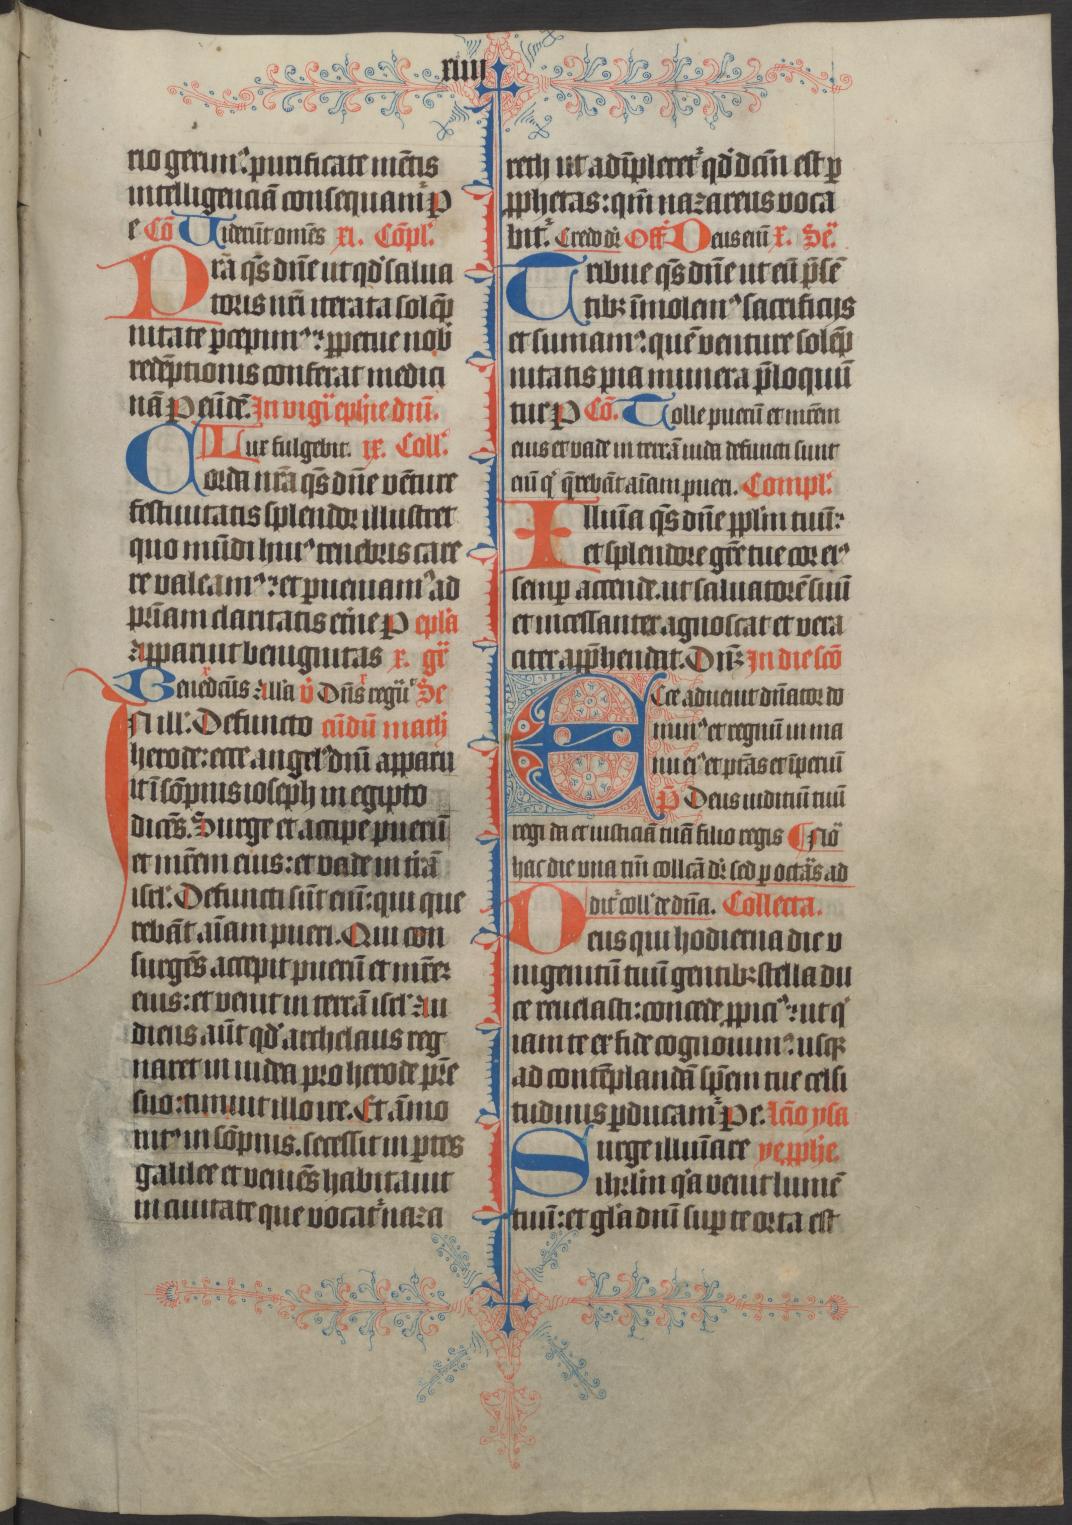 xiiii
rio gerimꝰ. purificate mētis
intelligenciā consequamr̄ P
e Cō Uiderūt omēs xi. Cōpl.
Prā q̄s dn̄e ut qd̓ salua
toris nr̄i iterata solēp
nitate p̱cepimꝰ: ꝓpetue nob̄
redēptionis conferat medici
nā P eūdē. In vigil̓ ephīe dnī.
Lux fulgebit. ix. Coll.
Corda nr̄a q̄s dn̄e vēture
festiuitatis splendor illustret
quo mūdi huiꝰ tenebris care
re valeamꝰ: et p̱ueniamꝰ ad
pr̄iam claritatis et̄ne P ep̄la
Apparuit benignitas x. gr̄
Benedictꝰ Alla v̓ Dn̄s regn̄ Se
In ill. Defuncto cūdū math̄
herode: ecce angelꝰ dn̄i apparu
it ī sōpnis ioseph in egipto
dicēs. Surge et accipe puerū
et mr̄em eius: et vade in tr̄ā
isrl̓. Defuncti sūt enī: qui que
rebāt aīam pueri. Qui con
surgēs accepit puerū et mr̄eꝫ
eius: et venit in terrā isrl̓. Au
diens aūt qd̓ archelaus reg
naret in iudea pro herode pr̄e
suo: timuit illo ire. Et āmo
nitꝰ in sōpnis. secessit in p̱tes
galilee et veniēs habitauit
in ciuitate que vocat̓ naza
reth ut adīpleret̓ qd̓ dc̄m est p̱
ꝓphetas: qm̄ nazareus voca
bit̓. Credo dr̄ Off̄ Deus eni x. Se.
Tribue q̄s dn̄e ut eū p̄sē
tibꝫ īmolemꝰ sacrificijs
et sumamꝰ: quē venture solēp
nitatis pia munera p̄loquū
tur P Cō. Tolle puerū et mr̄em
eius et vade in terrā iuda defuncti sunt
enī qͥ q̄rebāt aīam pueri. Compl.
Illuīa q̄s dn̄e ppl̄m tuū:
et splendore gr̄e tue cor eiꝰ
semp̱ accende. ut saluatorē suū
et incessanter agnoscat et vera
citer app̄hendat. Dn̄ꝫ In die scō
Ecce aduenit dn̄ator do
minꝰ et regnū in ma
nu eiꝰ et ptās et īperiū
P̄ Deus iudiciū tuū
regi da et iusticiā tuā filio regis Nō
hac die vna tm̄ collcā dr̄ sed p̱ octās ad
ditr̄ coll̓ de dn̄a. Collecta.
Deus qui hodierna die v
nigenitū tuū gentibꝫ stella du
ce reuelasti: concede ꝓpiciꝰ: ut qͥ
iam te ex fide cognouimꝰ: usqꝫ
ad contēplandā sp̄em tue celsi
tudinis p̱ducamr̄ Pe. Lc̄io ysa
Surge illuīare ye ꝓphe.
ihrl̄m q̓a venit lumē
tuū: et gl̓a dn̄i sup̱ te orta est